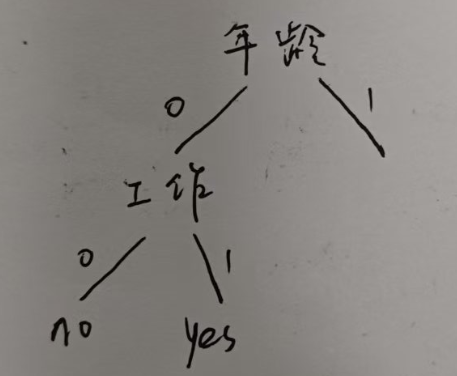 年龄
0 1
工作
0 1
no yes